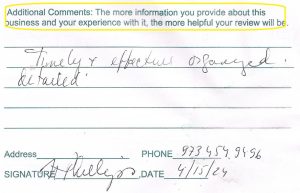 Additional Comments: The more information you provide about this
business and your experience with it, the more helpful your review will be.
Timely & effective organized.
detailed.
Address PHONE 973 454 9496
SIGNATURE DATE 4/15/24